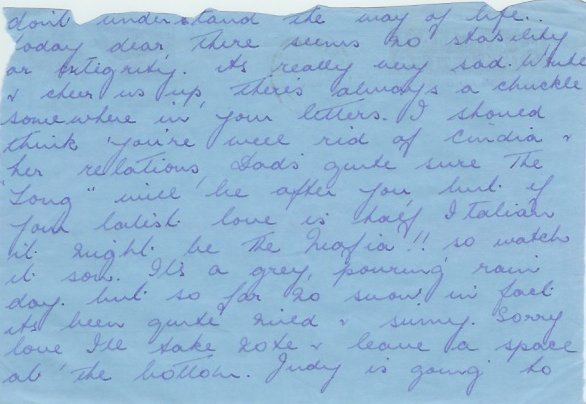 don't understand the way of life..
Today dear, there seems no stability
or integrity. its really very sad. Write
& cheer us up, there's always a chuckle
somewhere in your letters. I should
think you're well rid of Cindia &
her relations, Dads quite sure The
"Tong" will be after you, but if
your latest love is half Italian
it might be the Mafia!! so watch
it son. It's a grey, pouring rain
day. but so far no snow, in fact
its been quite mild & sunny. Sorry
love Ill take note & leave a space
at the bottom. Judy is going to